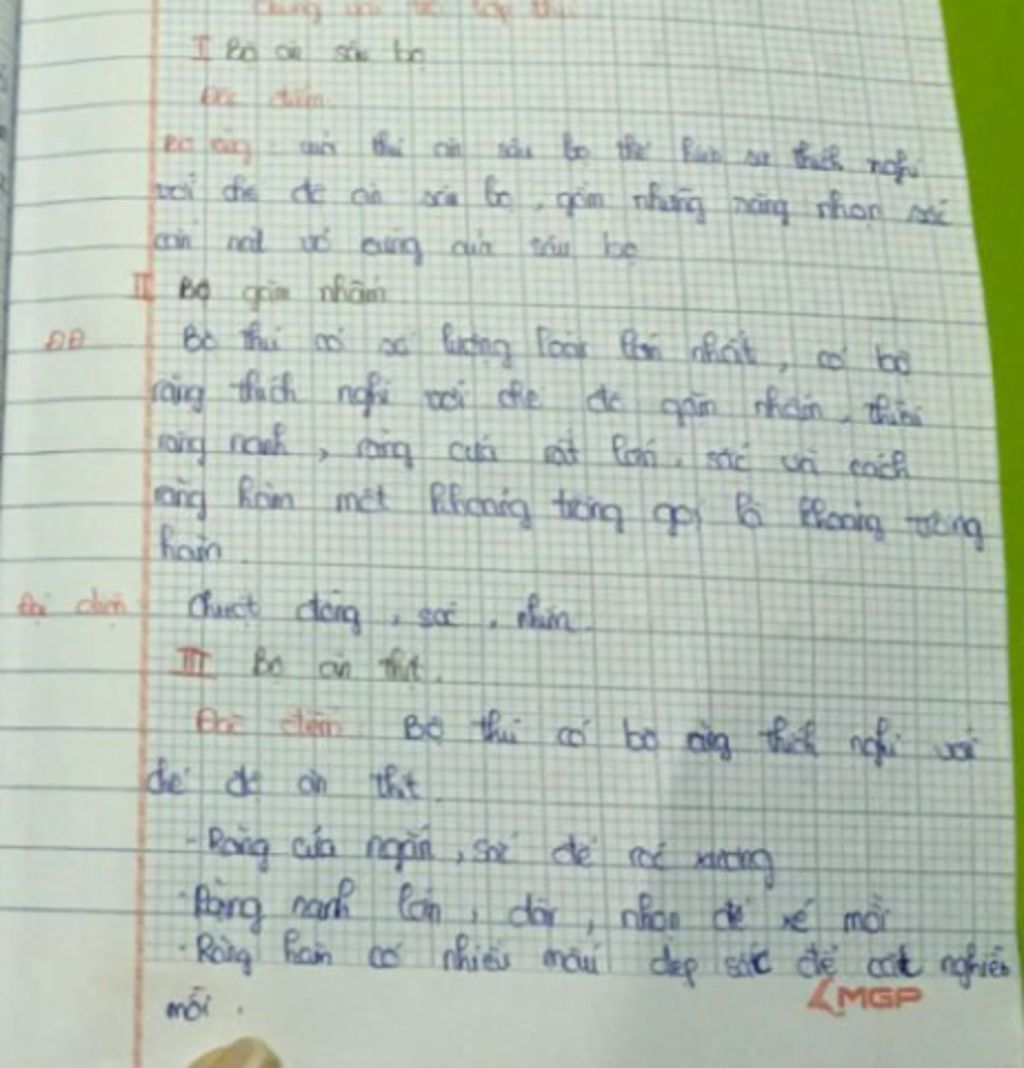 I Bộ ăn sâu bọ
Đặc điểm
Bộ răng của thú ăn sâu bọ thể hiện sự thích nghi
với chế độ ăn sâu bọ, gồm những răng nhọn sắc
cắn nát vỏ cứng của sâu bọ
II Bộ gặm nhấm
ĐĐ Bộ thú có số lượng loài lớn nhất, có bộ
răng thích nghi với chế độ gặm nhấm, thiếu
răng nanh, răng cửa rất lớn, sắc và cách
răng hàm một khoảng trống gọi là khoảng trống
hàm.
Đại diện Chuột đồng, sóc, nhím.
III Bộ ăn thịt.
Đặc điểm Bộ thú có bộ răng thích nghi với
chế độ ăn thịt.
- Răng cửa ngắn, sắc để róc xương
- Răng nanh lớn, dài, nhọn để xé mồi
- Răng hàm có nhiều mấu dẹp sắc để cắt nghiền
mồi.
MGP